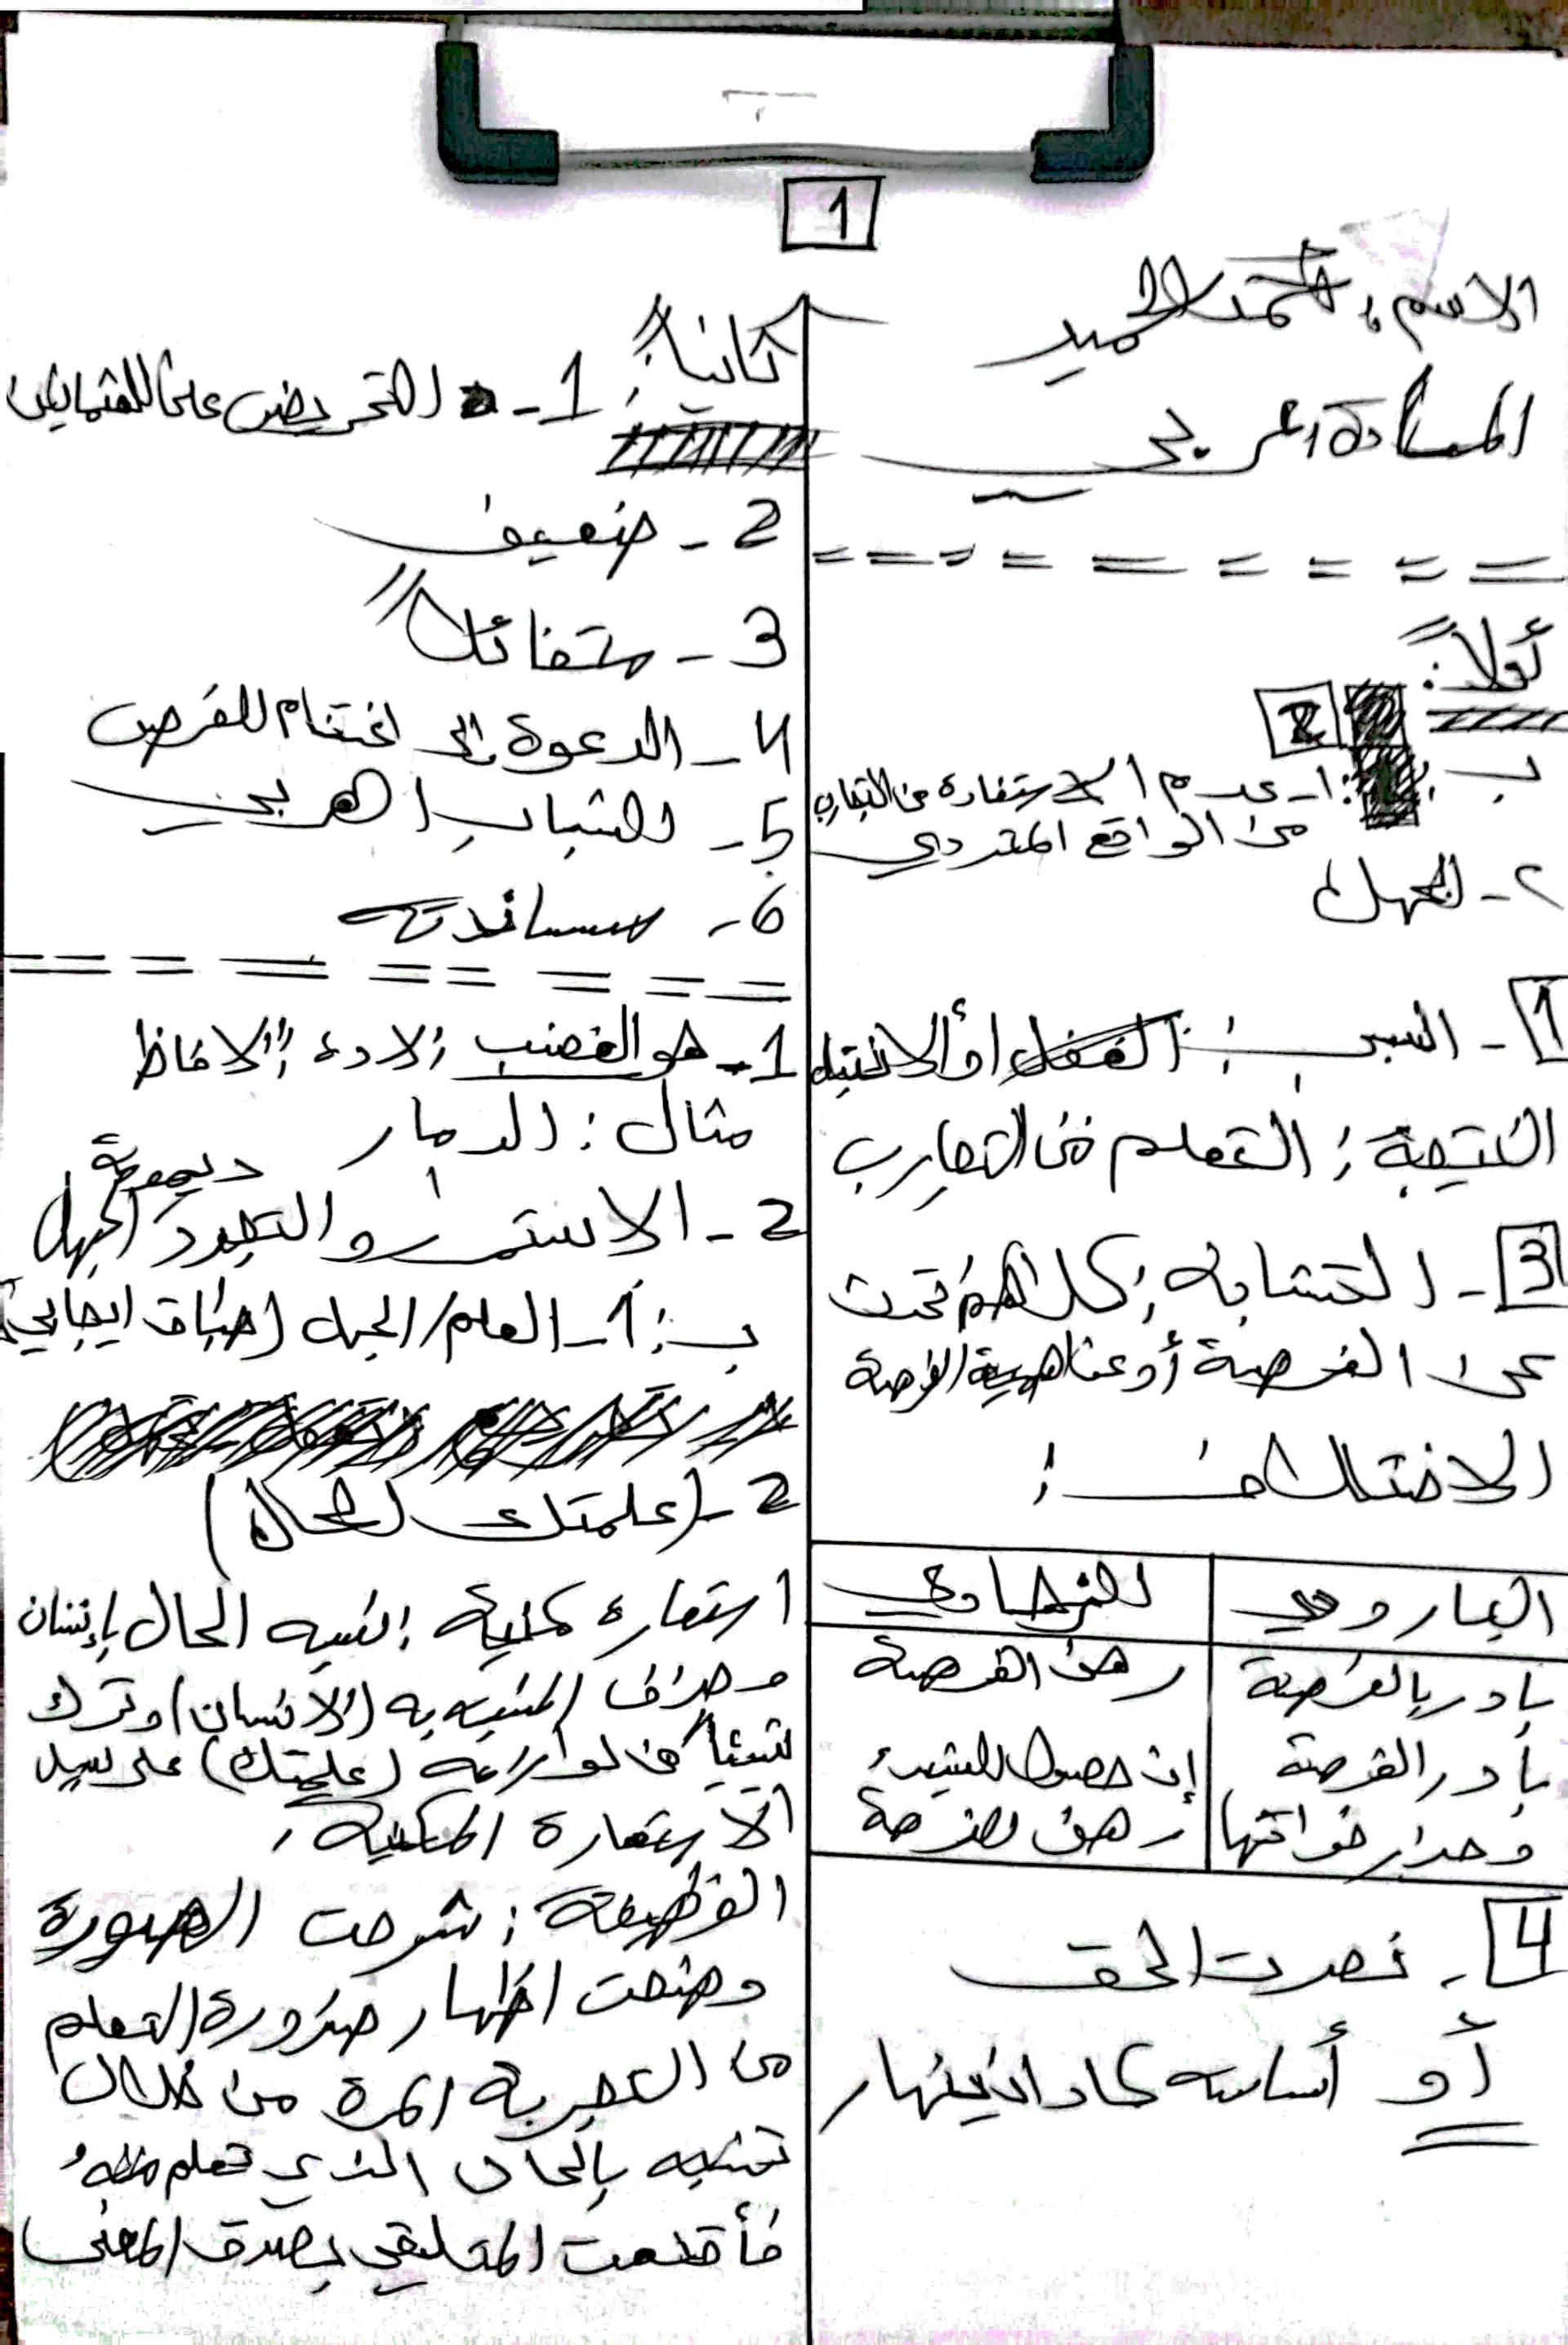 1
الاسم: محمد الحميد
المادة: عربي
أولاً:
2
ب: 1- عدم الاستفادة من التجارب
من الواقع المتردي
2- الجهل
1 - السبب: الغفل أو الانتباه
النتيجة: التعلم من التجارب
3 - التشابه: كلاهما تحدث
عن الفرصة أو عن الفرصة
الاختلاف:
البارودي
الزهاوي
بادر بالفرصة
رهن الفرصة
بادر الفرصة
وحذار فواتها
إن حصول الشيء
رهن الفرصة
4 - نصرت الحق
أو أساسه كاد أن ينهار
ثانياً:
1- التحريض على العثمانيين
2- ضعيف
3- متفائل
4- الدعوة إلى اغتنام الفرص
5- للشباب العربي
6- مساندته
1- هو الغضب الأداة: الالفاظ
مثال: الدمار
2- الاستمرار والتجدد ديمومة الجهل
ب: 1- العلم/الجهل (طباق ايجابي)
2- (علمتك الحال)
استعارة مكنية: شبه الحال بإنسان
وحذف المشبه به (الانسان) وترك
شيئاً من لوازمه (علمتك) على سبيل
الاستعارة المكنية.
الوظيفة: شرحت الصورة
وضحت اظهار ضرورة التعلم
من التجربة المرة من خلال
تشبيه بالحال الذي تعلم منه
فأقنعت المتلقي بصدق المعنى